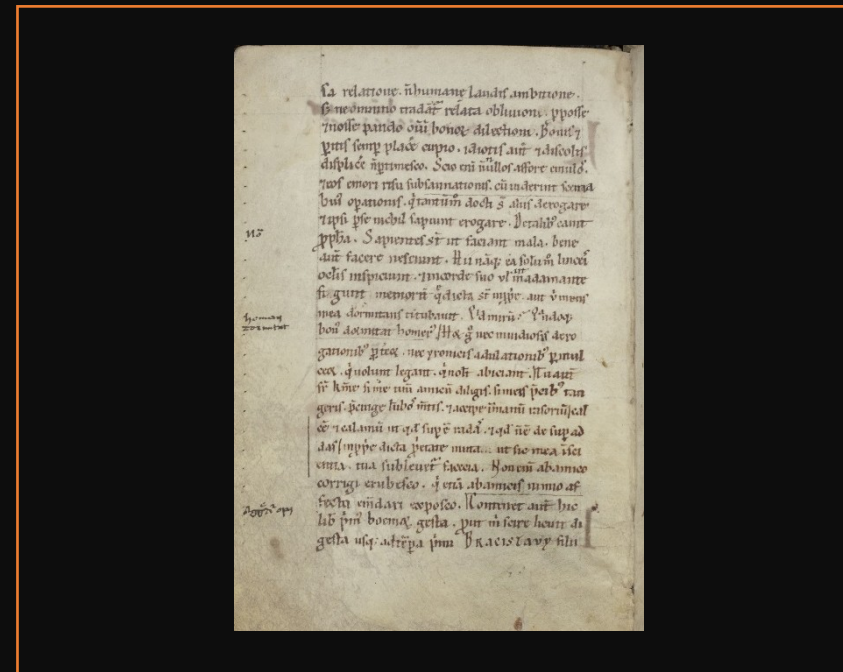 sa relatione. ñ humane laudis ambitione.
s; ne omnino tradāt͛ relata oblivioni. p̱posse
⁊ nosse pando oūı bonoꝝ dilectioni. Bonis ⁊
ꝑitis semꝑ placē cupio. idiotis aūt ⁊ discolis
displicē ñ ꝑtimesco. Scio eñi ñnullos affore emulos.
⁊ eos emori risu subsannationis. cū viderint scema
huı᷒ opationis. q̇ tantum̄ docti s̄t aliis derogare
⁊ ipsi ꝑ se nichil sapiunt erogare. De talib᷒ canit
ꝓph̄a. Sapientes s̄t ut faciant mala. bene
aūt facere nesciunt. Hii nāq; ea solum̄ linceis
oclis inspiciunt. ⁊ in corde suo vł in adamante
figunt memorit̄ q̄ dicta s̄t inꝓpe. aut ū mens
mea dormitans titubavit. Qͥd mirū? Qn̄doq;
bon᷒ dormitat homer᷒. Hoꝝ g̊ nec invidiosis dero
gationib᷒ ꝑt̄reor. nec yronicis adulationib᷒ ꝑmul
ceor. q̇ volunt legant. q̇ nolt̄ abiciant. Tu aūt
fr̄ k̄me si me tuū amicū diligis. si meis p̄cib᷒ tan
geris. p̄cinge lūbos m̄tis. ⁊ accipe in manū rasoriū/ cal
cē ⁊ calamū ut qd̄ suꝑ ē radas. ⁊ qd̄ n̄ ē de suꝑ ad
das/ inꝓpe dicta ꝓpetate muta... ut sic mea īsci
entia. tua sublevet͛ facecia. Non eni᷒ ab amico
corrigi erubesco. q̇ etiā ab amicis nimio af
fectu em̄dari exposco. Continet aūt hic
lib̄ p̄m᷒ boemoꝝ gesta. ꝓut m̄ scire licuit di
gesta usq; ad tēpora p̄mi BRACIZLAVY filii